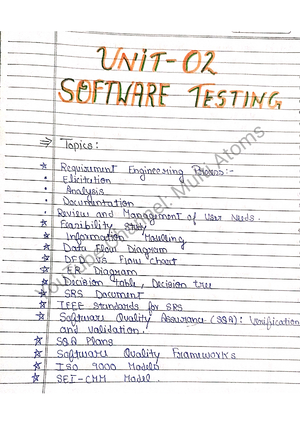 UNIT-02
SOFTWARE TESTING
⇒ Topics:
☆ Requirement Engineering Process:-
• Elicitation
• Analysis
• Documentation
• Review and Management of User Needs.
☆ Feasibility Study
☆ Information Modelling
☆ Data Flow Diagram
☆ DFD VS Flow Chart
☆ ER Diagram
☆ Decision Table, Decision tree
☆ SRS Document
☆ IEEE Standards for SRS
☆ Software Quality Assurance (SQA): Verification
and Validation.
☆ SQA Plans
☆ Software Quality Frameworks
☆ ISO 9000 Models
☆ SEI-CMM Model.
Youtube Channel: Multi Atoms